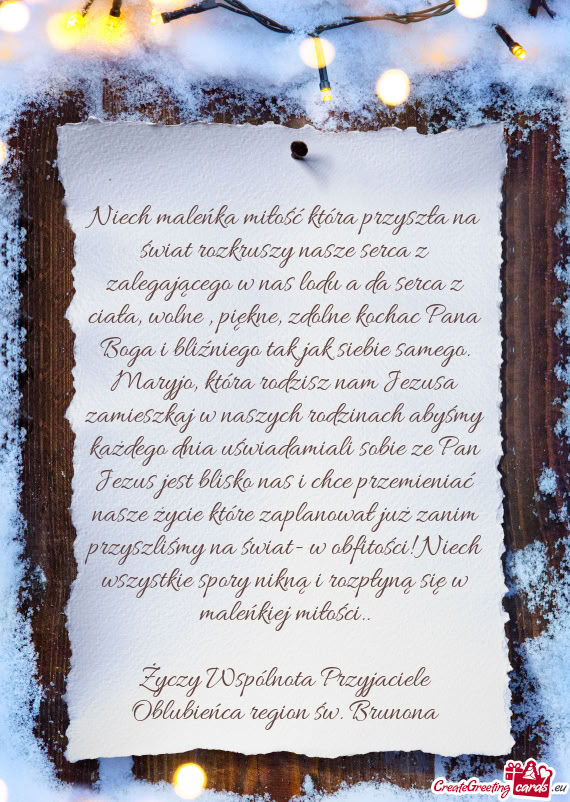 Niech maleńka miłość która przyszła na
świat rozkruszy nasze serca z
zalegającego w nas lodu a da serca z
ciała, wolne , piękne, zdolne kochac Pana
Boga i bliźniego tak jak siebie samego.
Maryjo, która rodzisz nam Jezusa
zamieszkaj w naszych rodzinach abyśmy
każdego dnia uświadamiali sobie ze Pan
Jezus jest blisko nas i chce przemieniać
nasze życie które zaplanował już zanim
przyszliśmy na świat- w obfitości! Niech
wszystkie spory nikną i rozpłyną się w
maleńkiej miłości..
Życzy Wspólnota Przyjaciele
Oblubieńca region św. Brunona
CreateGreeting cards .eu